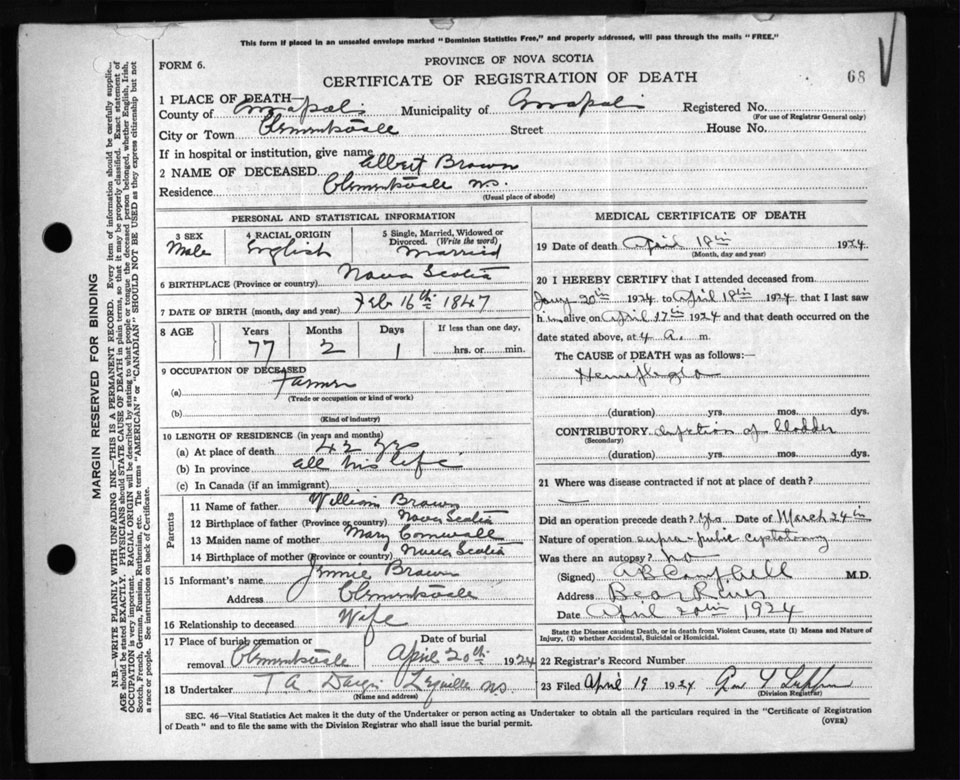 This form if placed in an unsealed envelope marked "Dominion Statistics Free," and properly addressed, will pass through the mails "FREE."
FORM 6.
PROVINCE OF NOVA SCOTIA
CERTIFICATE OF REGISTRATION OF DEATH
68
1 PLACE OF DEATH—
County of Annapolis Municipality of Annapolis Registered No.
(For use of Registrar General only)
City or Town Clementsvale Street House No.
If in hospital or institution, give name
2 NAME OF DECEASED Albert Brown
Residence Clementsvale N.S.
(Usual place of abode)
PERSONAL AND STATISTICAL INFORMATION
3 SEX 4 RACIAL ORIGIN 5 Single, Married, Widowed or
Divorced. (Write the word)
Male English Married
6 BIRTHPLACE (Province or country) Nova Scotia
7 DATE OF BIRTH (month, day and year) Feb 16th 1847
8 AGE Years Months Days If less than one day,
77 2 1 hrs. or min.
9 OCCUPATION OF DECEASED
(a) Farmer
(Trade or occupation or kind of work)
(b)
(Kind of industry)
10 LENGTH OF RESIDENCE (in years and months)
(a) At place of death 42 yrs
(b) In province all his life
(c) In Canada (if an immigrant)
Parents
11 Name of father William Brown
12 Birthplace of father (Province or country) Nova Scotia
13 Maiden name of mother Mary Cornwall
14 Birthplace of mother (Province or country) Nova Scotia
15 Informant's name Jennie Brown
Address Clementsvale
16 Relationship to deceased Wife
17 Place of burial, cremation or Date of burial
removal Clementsvale April 20th 1924
18 Undertaker T A Lequille NS
(Name and address)
MEDICAL CERTIFICATE OF DEATH
19 Date of death April 18th 1924
(Month, day and year)
20 I HEREBY CERTIFY that I attended deceased from
Jany 20th 1924 to April 18th 1924 that I last saw
him alive on April 17th 1924 and that death occurred on the
date stated above, at 4 a. m.
The CAUSE of DEATH was as follows:—
Hemiplegia
(duration) yrs. mos. dys.
CONTRIBUTORY of bladder
(Secondary)
(duration) yrs. mos. dys.
21 Where was disease contracted if not at place of death?
Did an operation precede death? yes Date of March 24th
Nature of operation supra-pubic cystotomy
Was there an autopsy? no
(Signed) A B Campbell M.D.
Address Bear River
Date April 20th 1924
State the Disease causing Death, or in death from Violent Causes, state (1) Means and Nature of
Injury, (2) whether Accidental, Suicidal or Homicidal.
22 Registrar's Record Number
23 Filed April 19 1924
(Division Registrar)
SEC. 46—Vital Statistics Act makes it the duty of the Undertaker or person acting as Undertaker to obtain all the particulars required in the "Certificate of Registration
of Death" and to file the same with the Division Registrar who shall issue the burial permit.
(OVER)
MARGIN RESERVED FOR BINDING
N.B.—WRITE PLAINLY WITH UNFADING INK—THIS IS A PERMANENT RECORD. Every item of information should be carefully supplied.
AGE should be stated EXACTLY. PHYSICIANS should STATE CAUSE OF DEATH in plain terms, so that it may be properly classified. Exact statement of
OCCUPATION is very important. RACIAL ORIGIN will be described by stating to what people or tongue the deceased person belonged, whether English, Irish,
Scotch, French, German, Russian, Ruthenian, etc. The terms "AMERICAN" or "CANADIAN" SHOULD NOT BE USED as they express citizenship but not
a race or people. See instructions on back of Certificate.